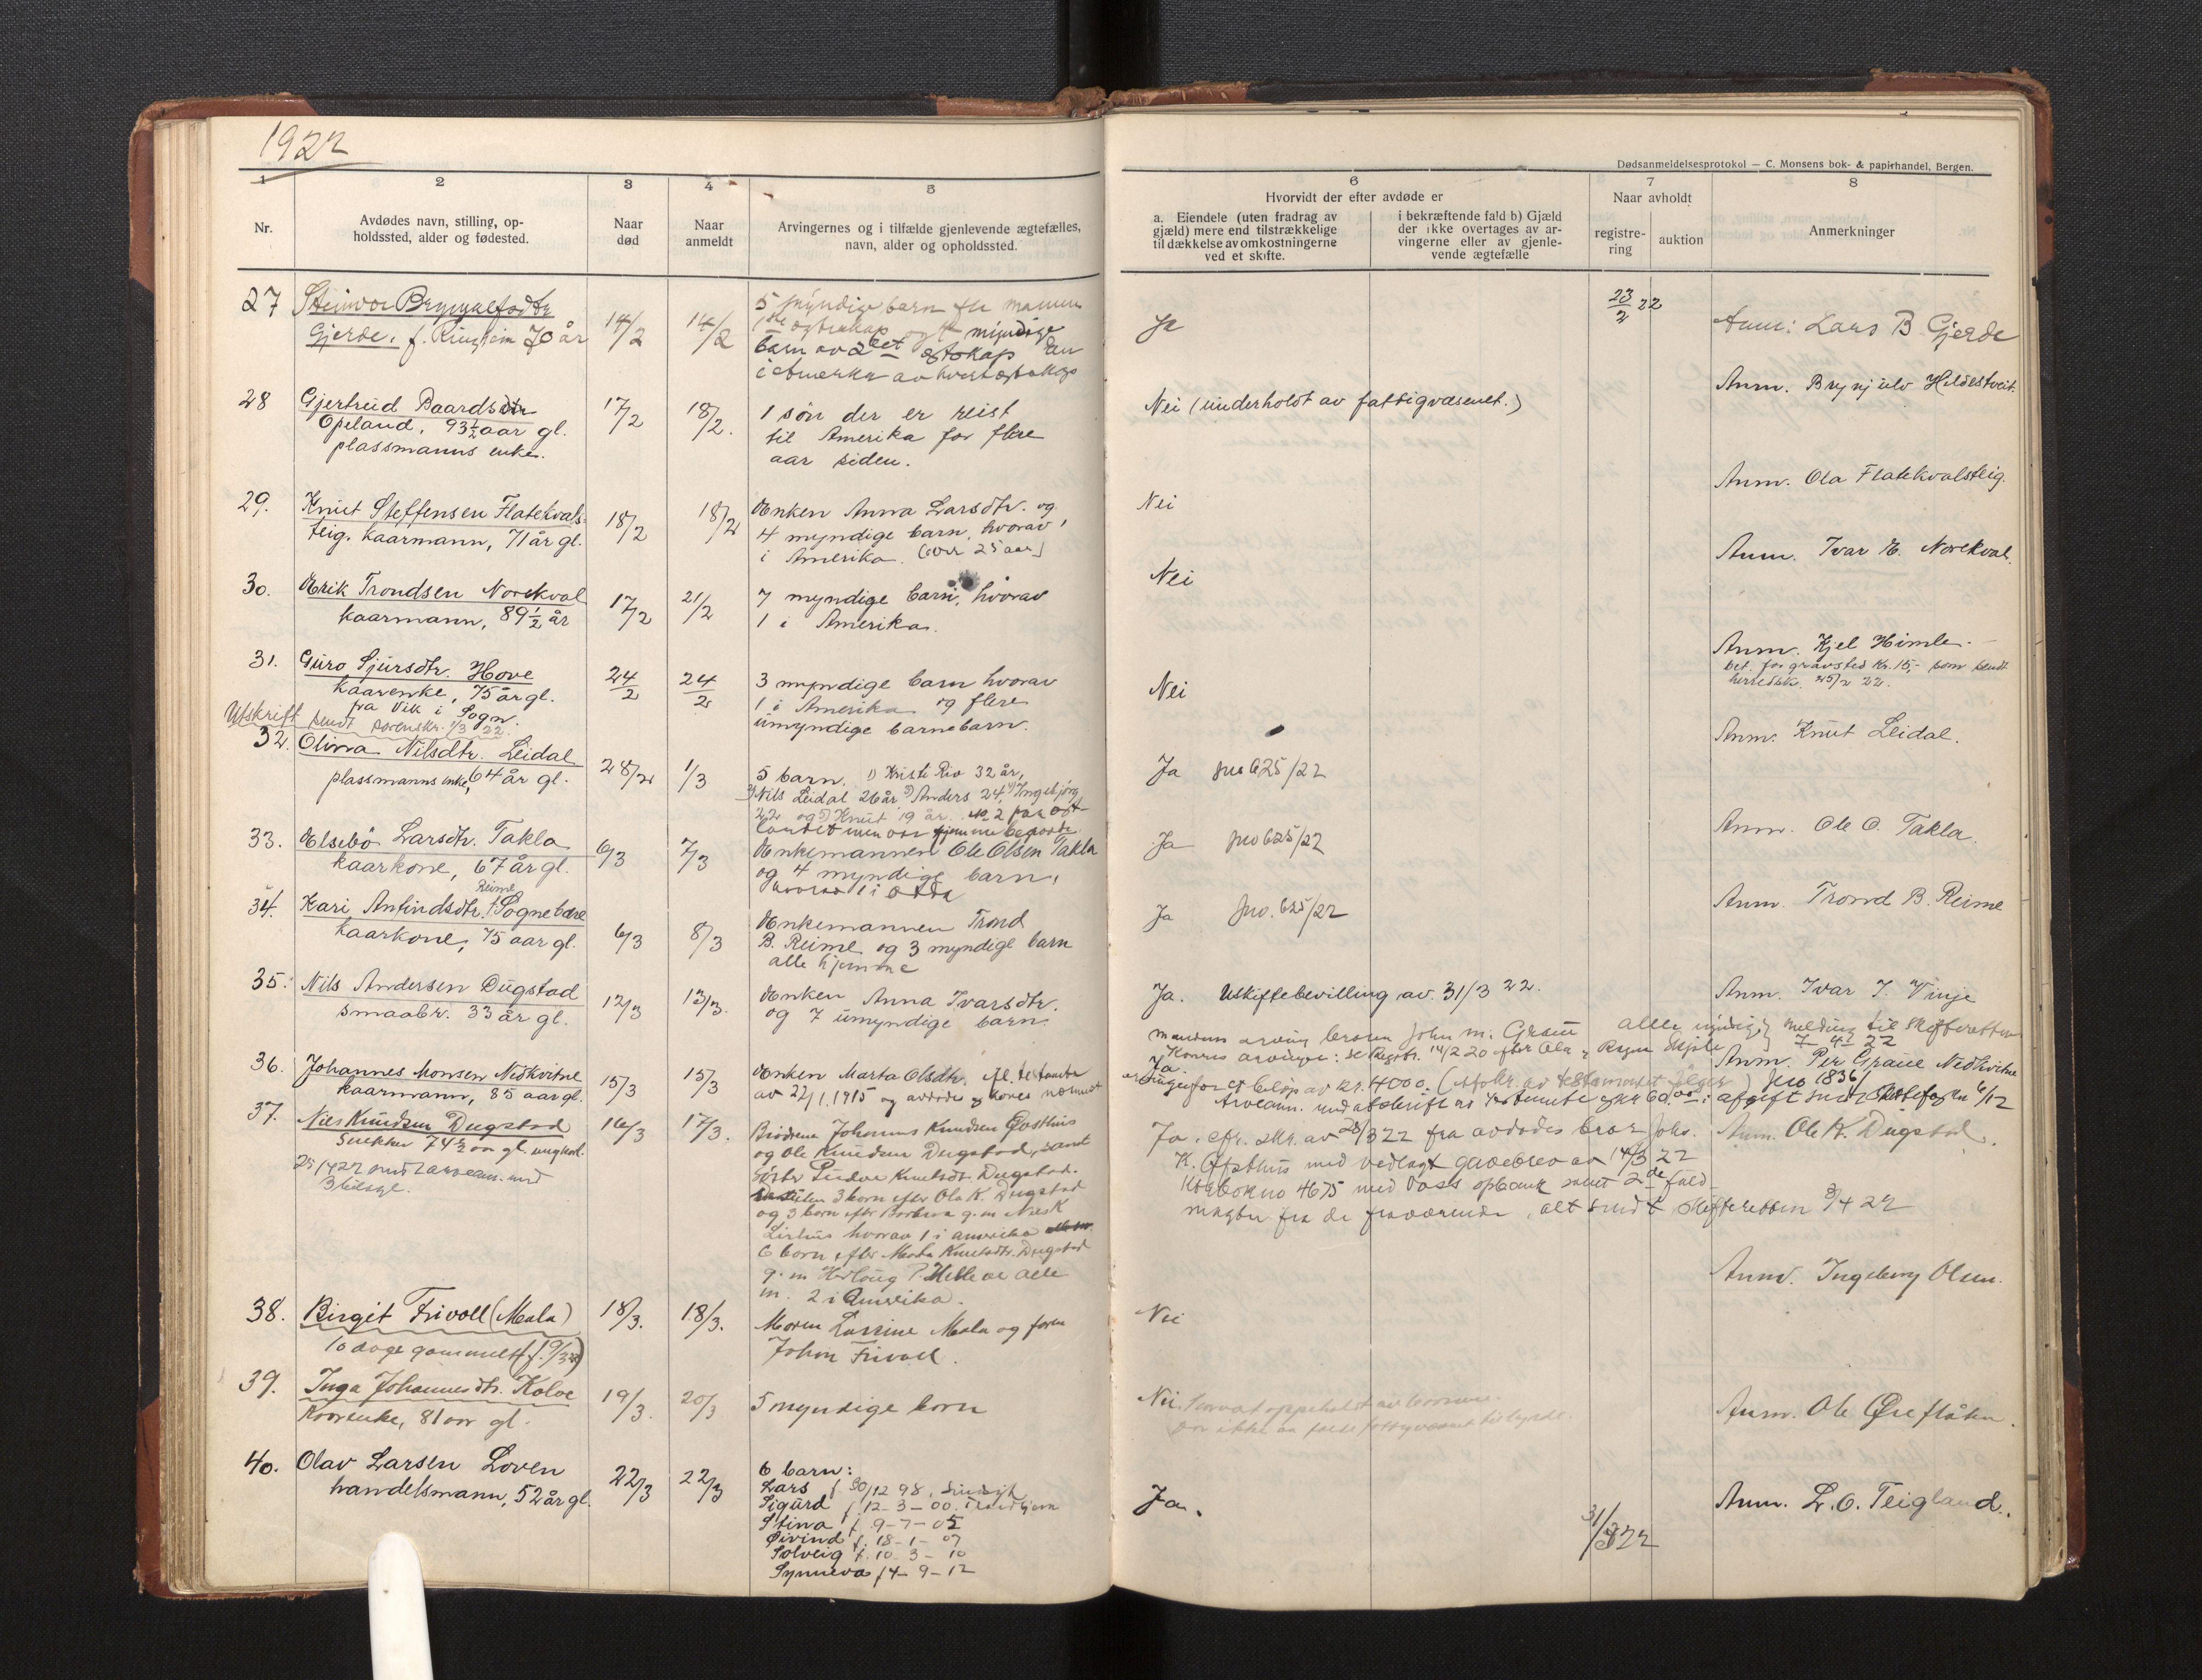 1922
Dødsanmeldelsesprotokol — C. Monsens bok- & papirhandel, Bergen.
1 2 3 4 5 6 7 8
Nr.
Avdødes navn, stilling, op-
holdssted, alder og fødested.
Naar
død
Naar
anmeldt
Arvingernes og i tilfælde gjenlevende ægtefælles,
navn, alder og opholdssted.
Hvorvidt der efter avdøde er
a. Eiendele (uten fradrag av
gjæld) mere end tilstrækkelige
til dækkelse av omkostningerne
ved et skifte.
i bekræftende fald b) Gjæld
der ikke overtages av ar-
vingerne eller av gjenle-
vende ægtefælle
Naar avholdt
registre-
ring
auktion
Anmerkninger
27 Steinvor Brynjulfsdtr
Gjerde, f. Ringheim 70 år
14/2 14/2
5 myndige barn
mindige
barn av 2det egtskap
i Amerika av
Ja
23/2 22
Anm: Lars B Gjerde
28 Gjertrud Baardsdtr
Opeland, 93½ aar gl.
plassmanns enke.
17/2 18/2.
1 sön der er reist
til Amerika for flere
aar siden.
Nei (underholdt av fattigvæsenet.)
Anm. Brynjulv Hildestveit.
29. Knut Steffensen Flatekvals-
teig. kaarmann, 71 år gl.
18/2 18/2
Enken Anna Larsdtr. og
4 myndige barn, hvorav 1
i Amerika. (over 25 aar)
Nei
Anm. Ola Flatekvalsteig.
30. Erik Trondsen Norekval
kaarmann, 89½ år
17/2 21/2
7 myndige barn, hvorav
1 i Amerika.
Nei
Anm. Ivar E. Norekval.
31. Guro Sjursdtr. Hove
kaarenke, 75 år gl.
fra Vik i Sogn.
24/2 24/2
3 myndige barn hvorav
1 i Amerika og flere
umyndige barnebarn.
Nei
Anm. Kjel Himle.
bet. for gravsted kr. 15,- som sendt
herredsk. 25/2 22.
Utskrift sendt sorenskr. 1/3 22.
32. Olina Nilsdtr. Leidal
plassmanns enke, 64 år gl.
28/2 1/3
5 barn. 1) Kristi Rio 32 år,
2) Nils Leidal 26 år 3) Anders 24, 4) Ingebjørg
22 og 5) Knut 19 år. No 2
Ja jno 625/22
Anm. Knut Leidal.
33. Elsebö Larsdtr. Takla
kaarkone, 67 år gl.
6/3 7/3
Enkemannen Ole Olsen Takla
og 4 myndige barn,
hvorav 1 i Odda
Ja jno 625/22
Anm. Ole O. Takla
34. Kari Anfindsdtr. Reime f. Sognebære
kaarkone, 75 aar gl.
6/3 8/3
Enkemannen Trond
B. Reime og 3 myndige barn
alle hjemme
Ja jno. 625/22
Anm. Trond B. Reime
35. Nils Andersen Dugstad
smaabr. 33 år gl.
12/3 13/3.
Enken Anna Ivarsdtr.
og 7 umyndige barn.
Ja. Uskiftebevilling av 31/3 22.
Anm. Ivar I. Vinje
36. Johannes Monsen Nedkvitne
kaarmann, 85 aar gl.
15/3 15/3
Enken Marta Olsdtr.
av 22/1.1915 og avdøde
mandens arving broren John M. Graue
Konens arvinger:
Ja
beløp av kr. 4000.
jno 1836/
Anm. Per Graue Nedkvitne
37. Nils Knudsen Dugstad
snikker 74½ aar gl. ungkar.
16/3 17/3.
Brødrene Johannes Knudsen Gjøsthus
og Ole Knudsen Dugstad, samt
søster
3 born efter Ola K. Dugstad
og 3 born efter Barbra g. m. Nils K
Lirhus hvorav 1 i amerika
6 born efter Marta Knutsdtr. Dugstad
g. m. Herlaug P. Helle
m. 2 i Amerika.
Ja. cfr. skr. av 28/3 22 fra avdødes bror Johs.
K. Gjøsthus med vedlagt gavebrev av 14/3 22
No 4675 med Voss opbank samt
fra de fraværende, alt sendt Skifteretten 3/4 22
Anm. Ole K. Dugstad.
38. Birgit Frivoll (Mala)
10 dage gammelt
18/3. 18/3.
Moren Lussine Mala og faren
Johan Frivoll.
Nei
Anm. Ingeborg Olsen.
39. Inga Johannesdtr. Kolve
Kaarenke, 81 aar gl.
19/3. 20/3
5 myndige born
Nei.
Anm. Ole Øreflåten.
40. Olav Larsen Loven
handelsmann, 52 år gl.
22/3 22/3
6 barn:
Lars f. 30/12 98,
Sigurd f. 12-3-00. Trondhjem
Stina f. 9-7-05
Øivind f. 18-1-07
Solveig f. 10-3-10
Synneva f 4-9-12
Ja.
31/3 22
Anm. L. O. Teigland.